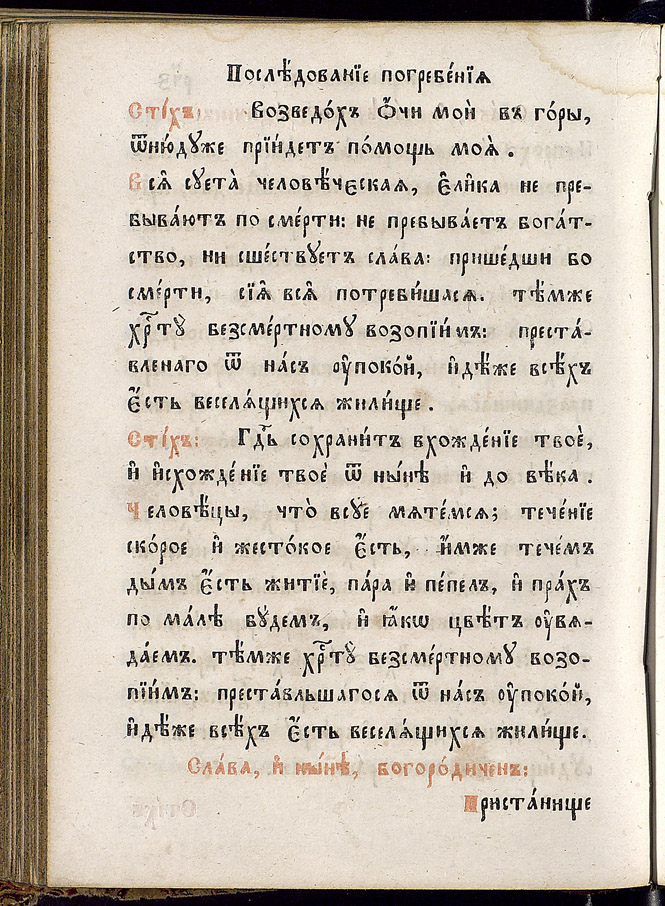 Послѣ́дованїе погребе́нїѧ
Сті́хъ: Возведо́хъ ѻ҆́чи моѝ въ го́ры,
ѿню́дꙋже прїи́детъ по́мощь моѧ̀.
Всѧ̑ сꙋета̀ человѣ́ческаѧ, є҆ли́ка не пре-
быва́ютъ по сме́рти: не пребыва́етъ бога́т-
ство, ни сше́ствꙋетъ сла́ва: прише́дши бо
сме́рти, сїѧ̑ всѧ̑ потреби́шасѧ. тѣ́мже
хрⷭ҇тꙋ̀ безсме́ртномꙋ возопїи́мъ: преста́-
вленаго ѿ на́съ ᲂу҆поко́й, и҆дѣ́же всѣ́хъ
є҆́сть веселѧ́щихсѧ жили́ще.
Сті́хъ: Гдⷭ҇ь сохрани́тъ вхожде́нїе твоѐ,
и҆ и҆схожде́нїе твоѐ ѿ ны́нѣ и҆ до вѣ́ка.
Человѣ́цы, что̀ всꙋе мѧте́мсѧ; тече́нїе
ско́рое и҆ жесто́кое є҆́сть, и҆́мже тече́мъ
ды́мъ є҆́сть житїѐ, па́ра и҆ пе́пелъ, и҆ пра́хъ
по ма́лѣ бꙋ́демъ, и҆ ꙗ҆́кѡ цвѣ́тъ ᲂу҆вѧ-
да́емъ. тѣ́мже хрⷭ҇тꙋ̀ безсме́ртномꙋ возо-
пїи́мъ: преста́вльшагосѧ ѿ на́съ ᲂу҆поко́й,
и҆дѣ́же всѣ́хъ є҆́сть веселѧ́щихсѧ жили́ще.
Сла́ва, и҆ ны́нѣ, богоро́диченъ:
Приста́нище